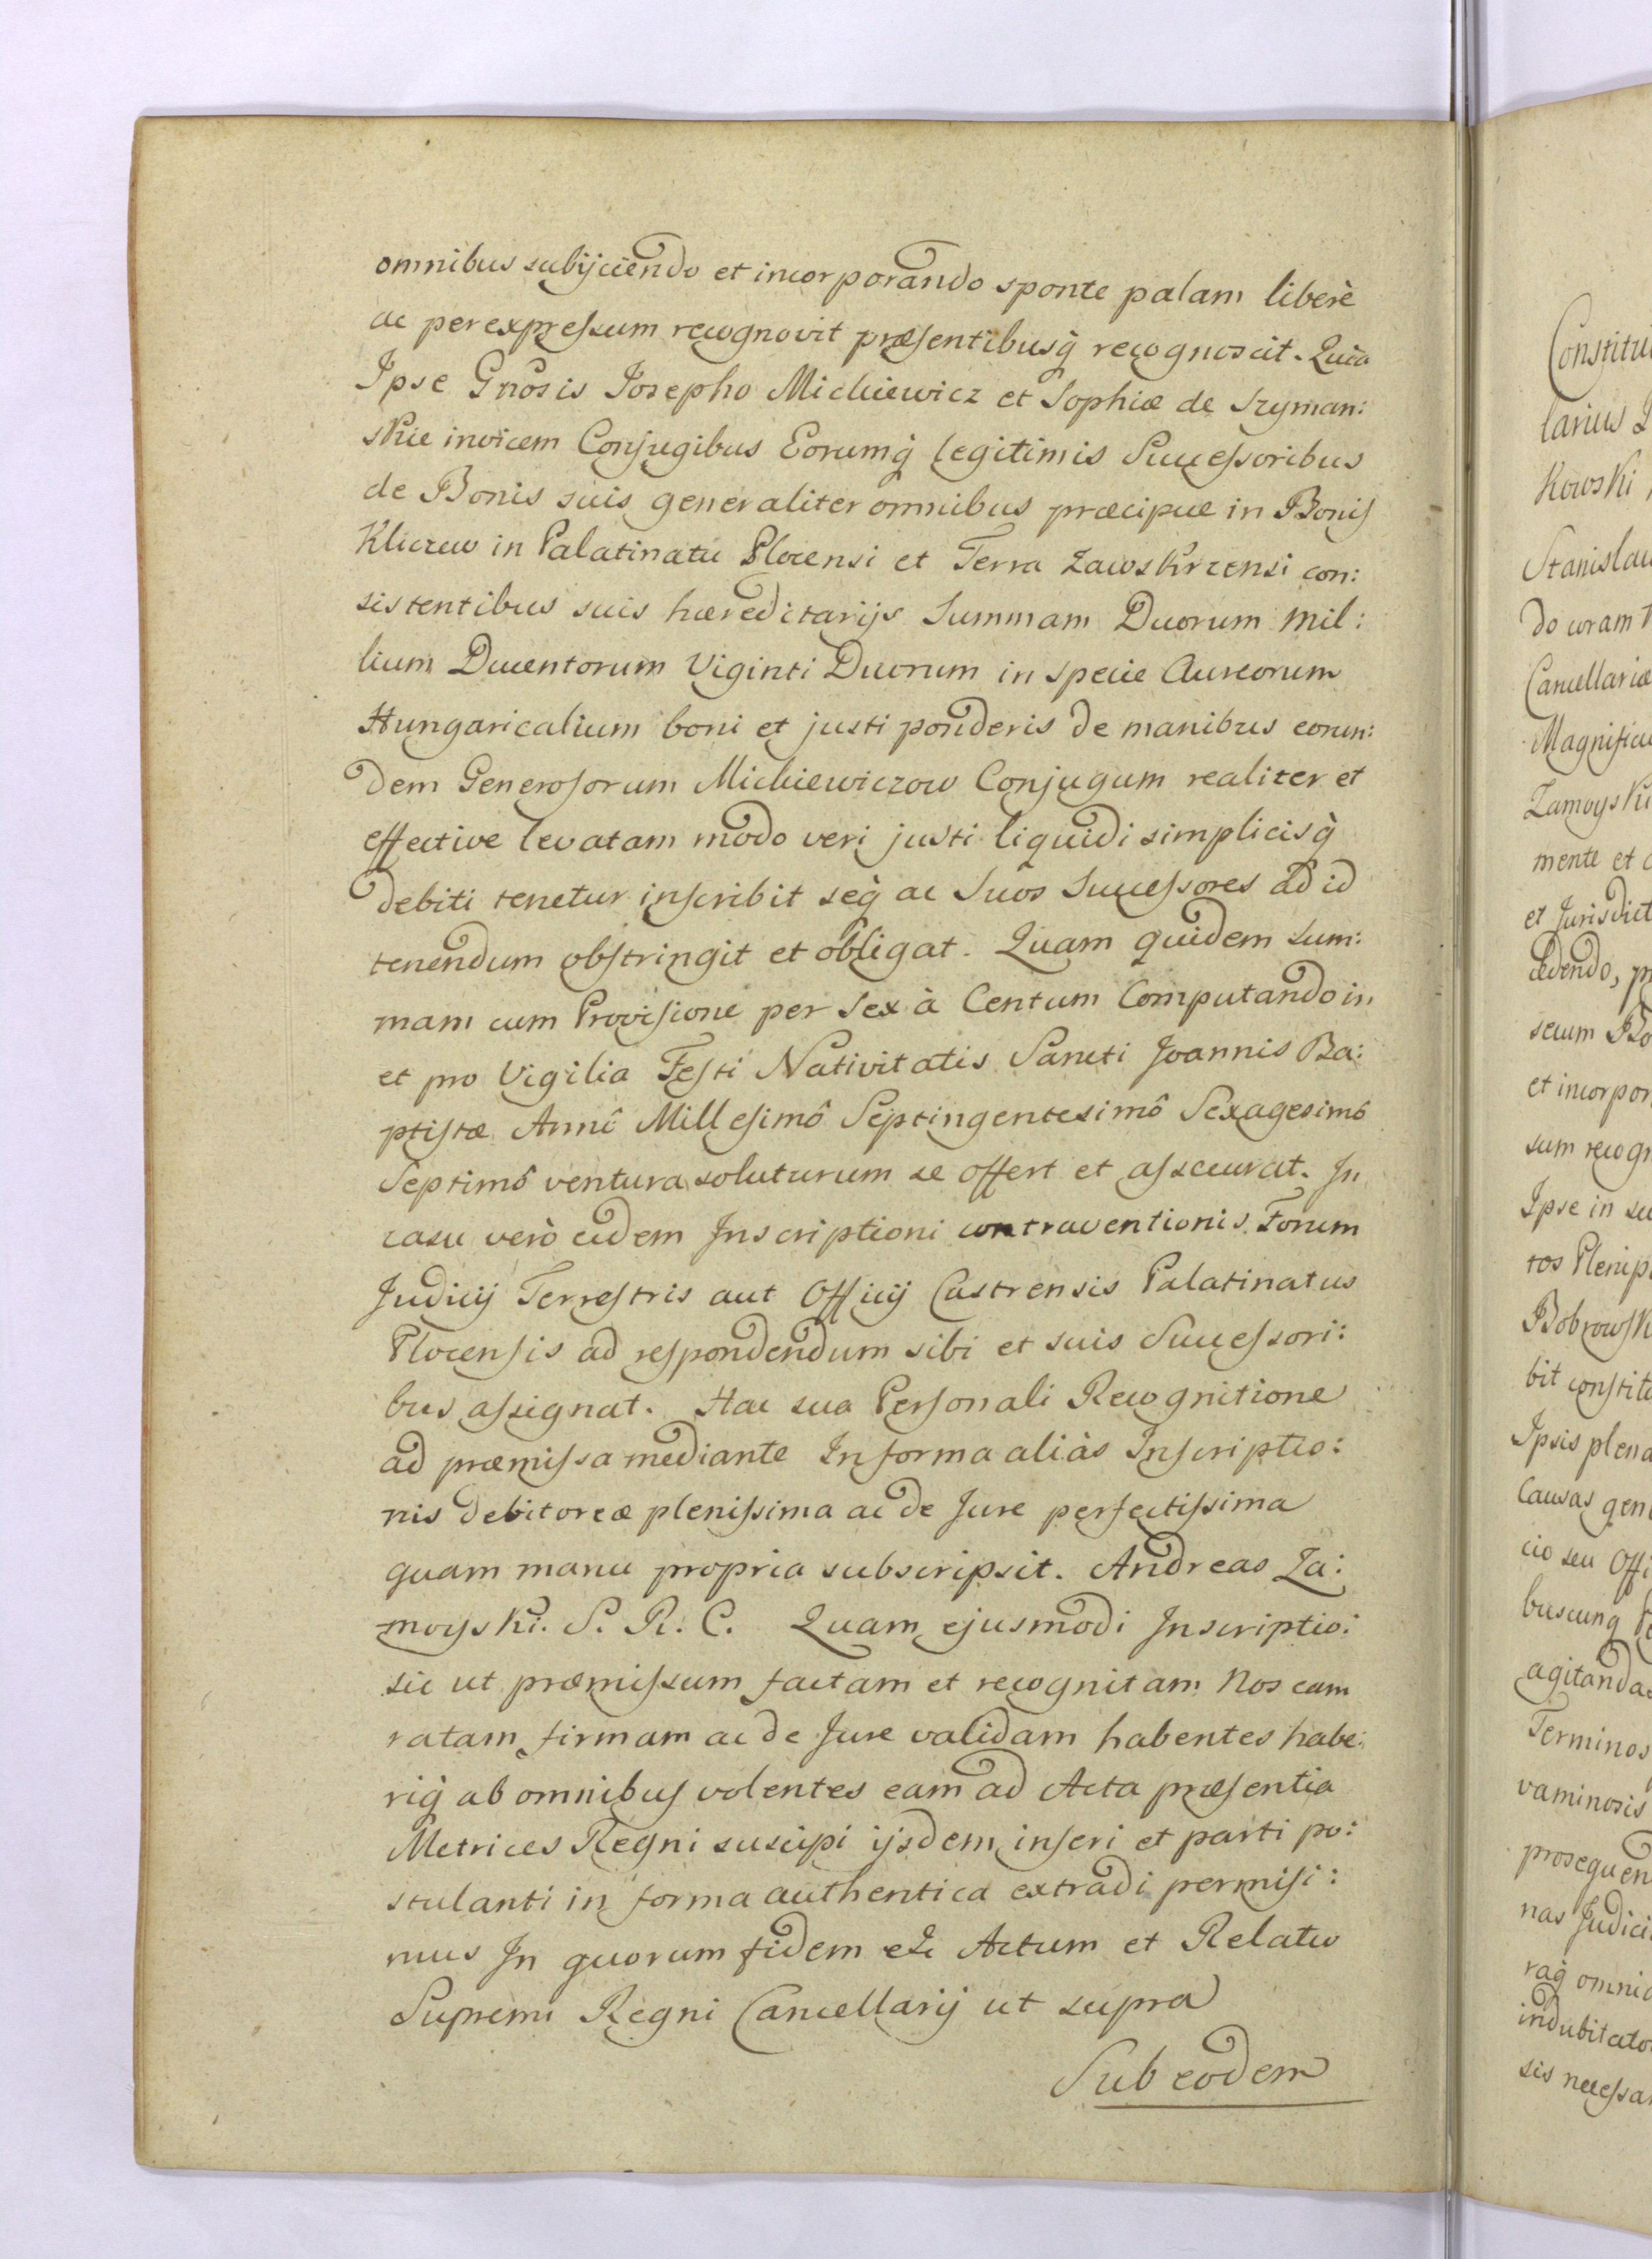 omnibus subijciendo et incorporando sponte palam liberè
ac per expressum recognovit præsentibusq̀ recognoscit. Quia
Ipse Gnôsis Josepho Mickiewicz et Sophiæ de Szyman:
skie invicem Conjugibus Eorumq̀ legitimis Successoribus
de Bonis suis generaliter omnibus præcipue in Bonis
Kliczew in Palatinatu Plocensi et Terra Zawskrzensi con:
sistentibus suis hæreditarijs Summam Duorum Mil:
lium Ducentorum Viginti Duorum in specie Aureorum
Hungaricalium boni et justi ponderis de manibus eorun:
dem Generosorum Mickiewiczow Conjugum realiter et
effective levatam modo veri justi liquidi simplicisq̀
debiti tenetur inscribit seq̀ ac Suos Successores ad id
tenendum obstringit et obligat. Quam quidem Sum:
mam cum Provisione per Sex à Centum Computando in
et pro Vigilia Festi Nativitatis Sancti Joannis Ba:
ptistæ Annô Millesimô Septingentesimô Sexagesimô
Septimô ventura soluturum se offert et assecurat. In
casu verò eidem Inscriptioni contraventionis Forum
Judicij Terrestris aut Officij Castrensis Palatinatus
Plocensis ad respondendum sibi et suis Successori:
bus assignat. Hac sua Personali Recognitione
ad præmissa mediante In forma aliàs Inscriptio:
nis debitoreæ plenissima ac de Jure perfectissima
quam manu propria subscripsit. Andreas Za:
moyski. S. R. C. Quam ejusmodi Inscriptio:
sic ut præmissum factam et recognitam Nos eam
ratam firmam ac de Jure validam habentes habe:
riq̀ ab omnibus volentes eam ad Acta præsentia
Metrices Regni suscipi ijsdem inseri et parti po:
stulanti in forma authentica extradi permisi:
mus In quorum fidem etc Actum et Relatio
Supremi Regni Cancellarij ut supra
Sub eodem
Constitu
larius
kowski
Stanislau
do coram
Cancellariæ
Magnificu
Zamoyski
mente et
et Jurisdict
cedendo, pr
secum
et incorpor
sum recogn
Ipse in su
tos Plenip
Bobrowsk
bit constitu
Ipsis plena
Causas gen
cio seu Offi
buscunq̀
agitandas
Terminos
vaminosis
prosequen
nas Judici
raq̀ omnia
indubitato
sis necessa